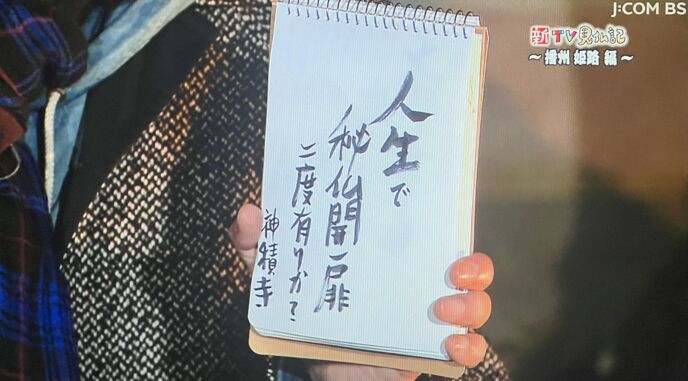 J:COM BS
新TV見仏記
～播州 姫路 編～
人生で
秘仏開扉
二度有りか？
神積寺